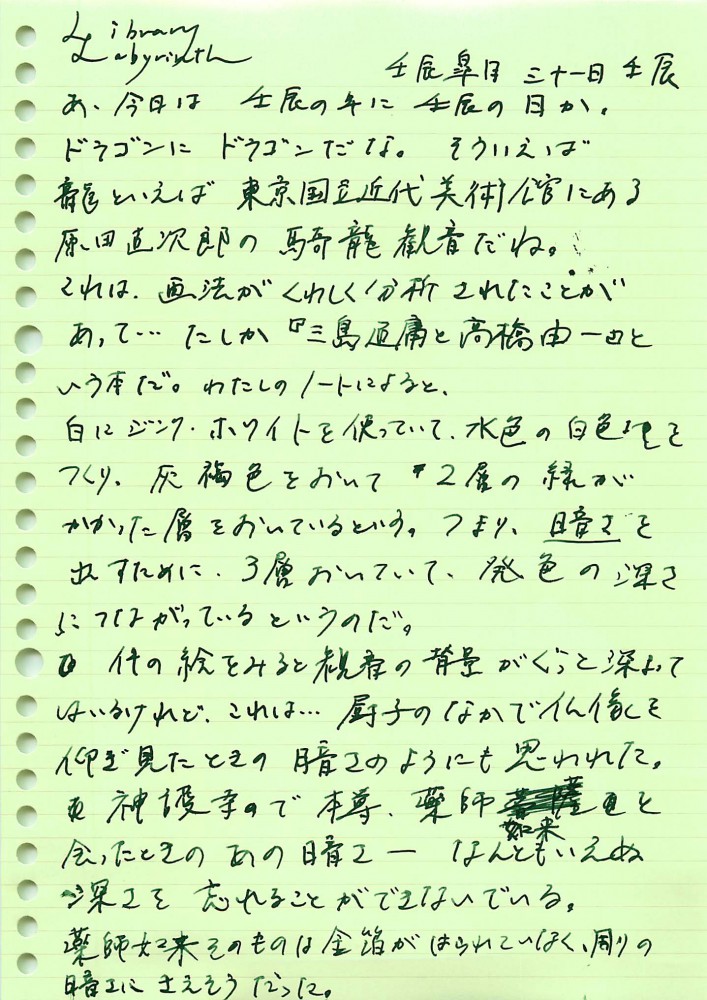 Library
Labyrinth
壬辰皐月 三十一日 壬辰
あ、今日は 壬辰の年に 壬辰の日か。
ドラゴンに ドラゴンだな。そういえば
龍といえば 東京国立近代美術館にある
原田直次郎の 騎龍観音だね。
これは、画法がくわしく分析されたことが
あって… たしか『三島通庸と高橋由一』と
いう本だ。わたしのノートによると、
白にジンク・ホワイトを使っていて、水色の白色地を
つくり、灰褐色をおいて 2層の緑が
かかった層をおいているという。つまり、暗さを
出すために、3層おいていて、発色の深さ
につながっているというのだ。
件の絵をみると観音の背景がぐっと深まって
はいるけれど、これは… 厨子のなかで仏像を
仰ぎ見たときの暗さのようにも思われた。
神護寺ので本尊、薬師如来と
会ったときのあの暗さ ― なんともいえぬ
深さを忘れることができないでいる。
薬師如来そのものは金箔がはられていなく、周りの
暗さにさえそうだった。